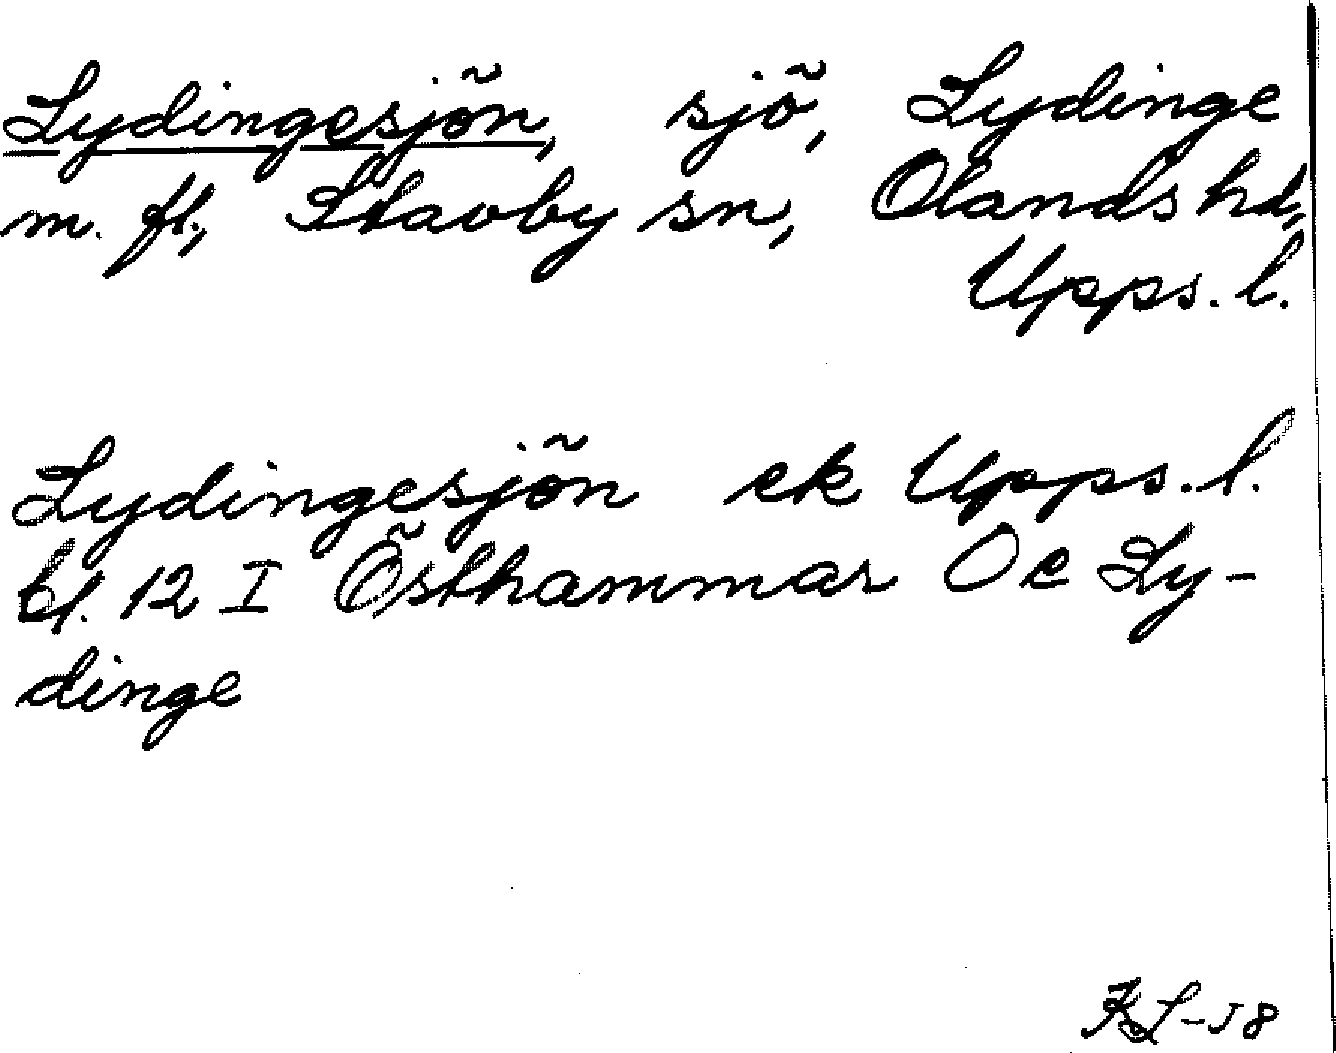 Lydingesjön, sjö, Lydinge
m. fl., Stavby sn, Olands hd,
Upps. l.
Lydingesjön ek Upps. l.
bl. 12 I Östhammar Oe Ly-
dinge
KL-58